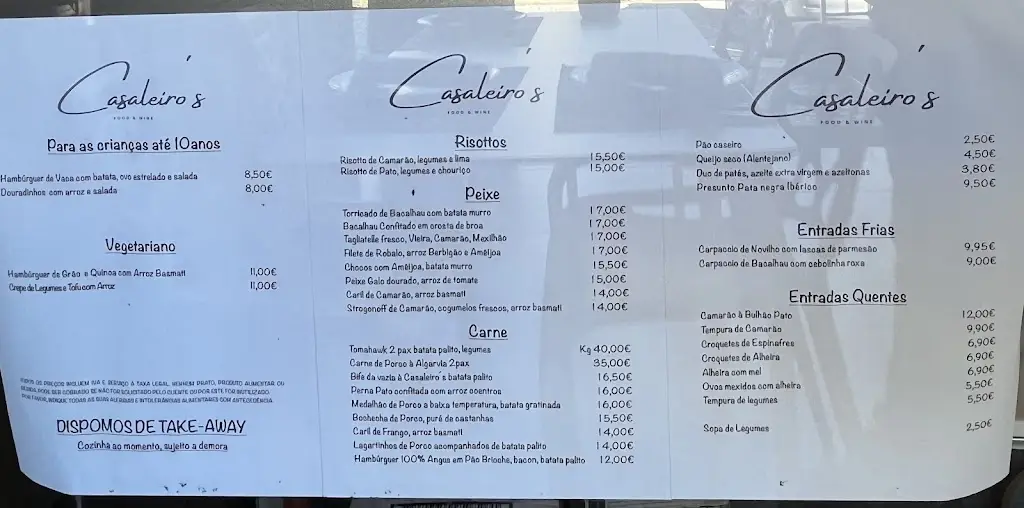 Casaleiro's
FOOD & WINE
Para as crianças até 10anos
Hambúrguer de Vaca com batata, ovo estrelado e salada 8,50€
Douradinhos com arroz e salada 8,00€
Vegetariano
Hambúrguer de Grão e Quinoa com Arroz Basmati 11,00€
Crepe de Legumes e Tofu com Arroz 11,00€
TODOS OS PREÇOS INCLUEM IVA E SERVIÇO À TAXA LEGAL. NENHUM PRATO, PRODUTO ALIMENTAR OU
BEBIDA, PODE SER COBRADO SE NÃO FOR SOLICITADO PELO CLIENTE OU POR ESTE FOR INUTILIZADO.
POR FAVOR, INDIQUE TODAS AS SUAS ALERGIAS E INTOLERÂNCIAS ALIMENTARES COM ANTECEDÊNCIA.
DISPOMOS DE TAKE-AWAY
Cozinha ao momento, sujeito a demora
Casaleiro's
FOOD & WINE
Risottos
Risotto de Camarão, legumes e lima 15,50€
Risotto de Pato, legumes e chouriço 15,00€
Peixe
Torricado de Bacalhau com batata murro 17,00€
Bacalhau Confitado em crosta de broa 17,00€
Tagliatelle fresco, Vieira, Camarão, Mexilhão 17,00€
Filete de Robalo, arroz Berbigão e Amêijoa 17,00€
Chocos com Amêijoa, batata murro 15,50€
Peixe Galo dourado, arroz de tomate 15,00€
Caril de Camarão, arroz basmati 14,00€
Strogonoff de Camarão, cogumelos frescos, arroz basmati 14,00€
Carne
Tomahawk 2 pax batata palito, legumes Kg 40,00€
Carne de Porco à Algarvia 2pax 35,00€
Bife da vazia à Casaleiro's batata palito 16,50€
Perna Pato confitada com arroz coentros 16,00€
Medalhão de Porco a baixa temperatura, batata gratinada 16,00€
Bochecha de Porco, puré de castanhas 15,50€
Caril de Frango, arroz basmati 14,00€
Lagartinhos de Porco acompanhados de batata palito 14,00€
Hambúrguer 100% Angus em Pão Brioche, bacon, batata palito 12,00€
Casaleiro's
FOOD & WINE
Pão caseiro 2,50€
Queijo seco (Alentejano) 4,50€
Duo de patés, azeite extra virgem e azeitonas 3,80€
Presunto Pata negra Ibérico 9,50€
Entradas Frias
Carpaccio de Novilho com lascas de parmesão 9,95€
Carpaccio de Bacalhau com cebolinha roxa 9,00€
Entradas Quentes
Camarão à Bulhão Pato 12,00€
Tempura de Camarão 9,90€
Croquetes de Espinafres 6,90€
Croquetes de Alheira 6,90€
Alheira com mel 6,90€
Ovos mexidos com alheira 5,50€
Tempura de legumes 5,50€
Sopa de Legumes 2,50€